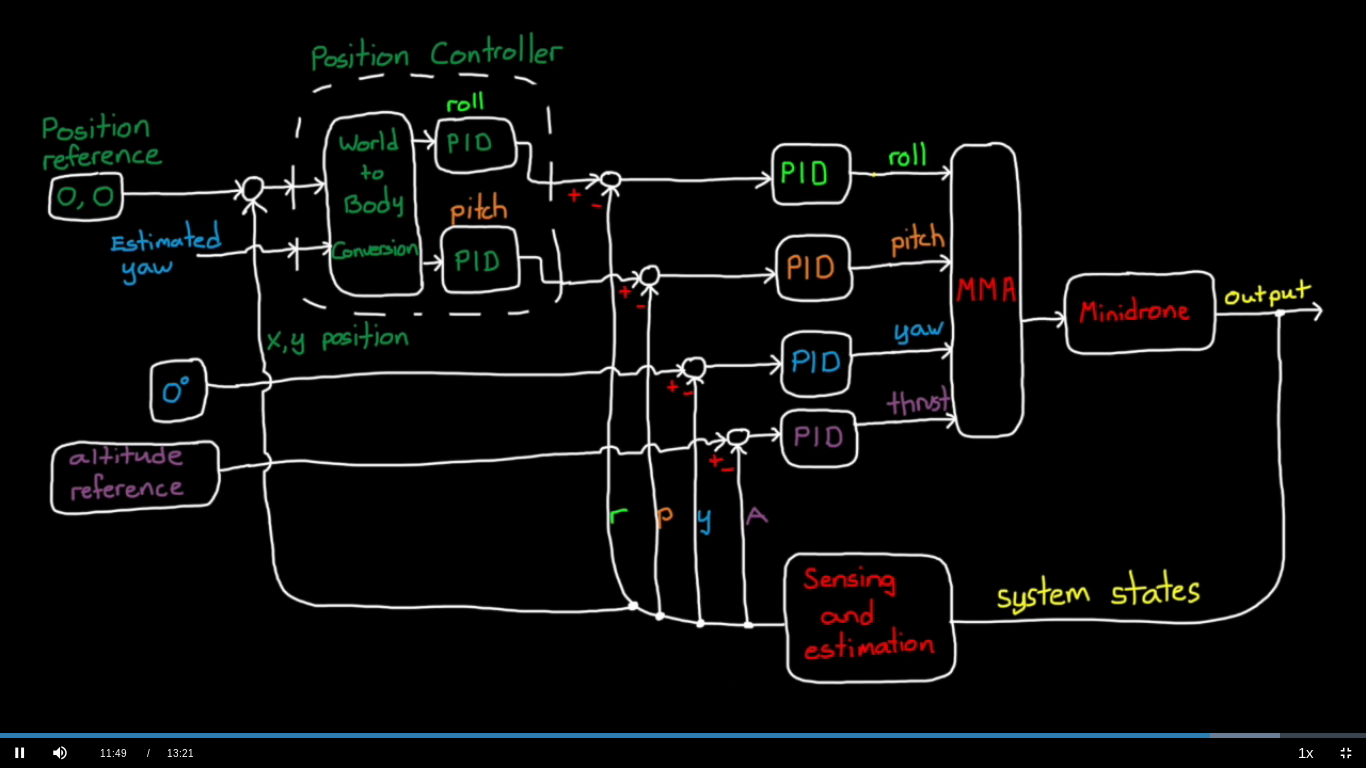 Position Controller
Position
reference
0, 0
Estimated
yaw
World
to
Body
Conversion
roll
PID
pitch
PID
x, y position
0°
altitude
reference
+
-
+
-
+
-
+
-
PID
roll
PID
pitch
PID
yaw
PID
thrust
MMA
Minidrone
output
r
p
y
A
Sensing
and
estimation
system states
11:49 / 13:21
1x